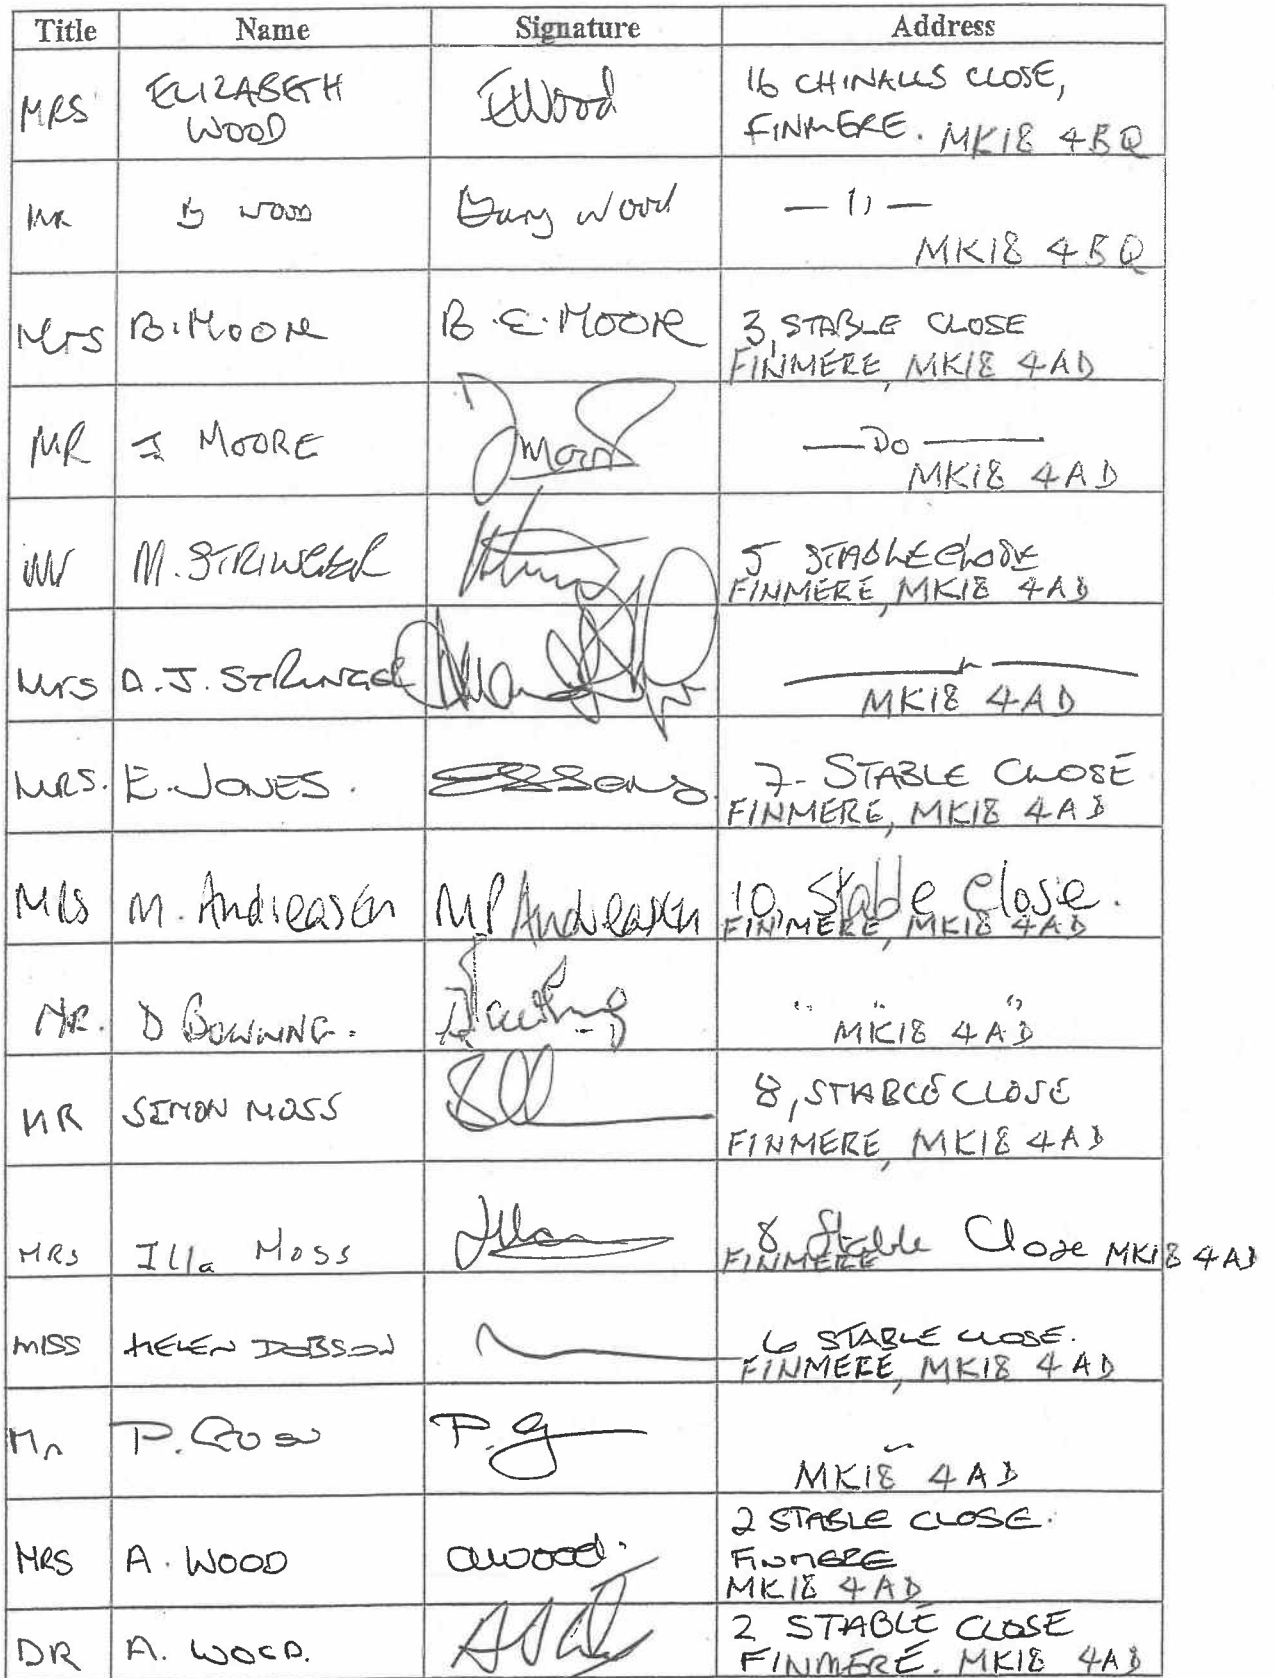 Title Name Signature Address
MRS ELIZABETH WOOD EWood 16 CHINALLS CLOSE,
FINMERE. MK18 4BQ
MR G WOOD Gary Wood — " —
MK18 4BQ
Mrs B. MOORE B.E. MOORE 3, STABLE CLOSE
FINMERE, MK18 4AD
MR J MOORE — Do —
MK18 4AD
Mr M. STRINGER 5 STABLE CLOSE
FINMERE, MK18 4AD
Mrs D. J. STRINGER — " —
MK18 4AD
MRS. E. JONES. 7 - STABLE CLOSE
FINMERE, MK18 4AD
MRS M. Andreasen MP Andreasen 10, Stable Close.
FINMERE, MK18 4AD
MR. D BOWNING. " " "
MK18 4AD
MR SIMON MOSS 8, STABLE CLOSE
FINMERE, MK18 4AD
MRS Illa Moss Illa 8 Stable Close MK18 4AD
FINMERE
MISS HELEN DOBSON 6 STABLE CLOSE.
FINMERE, MK18 4AD
Mr P. P. G "
MK18 4AD
MRS A. WOOD awood. 2 STABLE CLOSE.
FINMERE
MK18 4AD
DR A. WOOD. 2 STABLE CLOSE
FINMERE. MK18 4AD